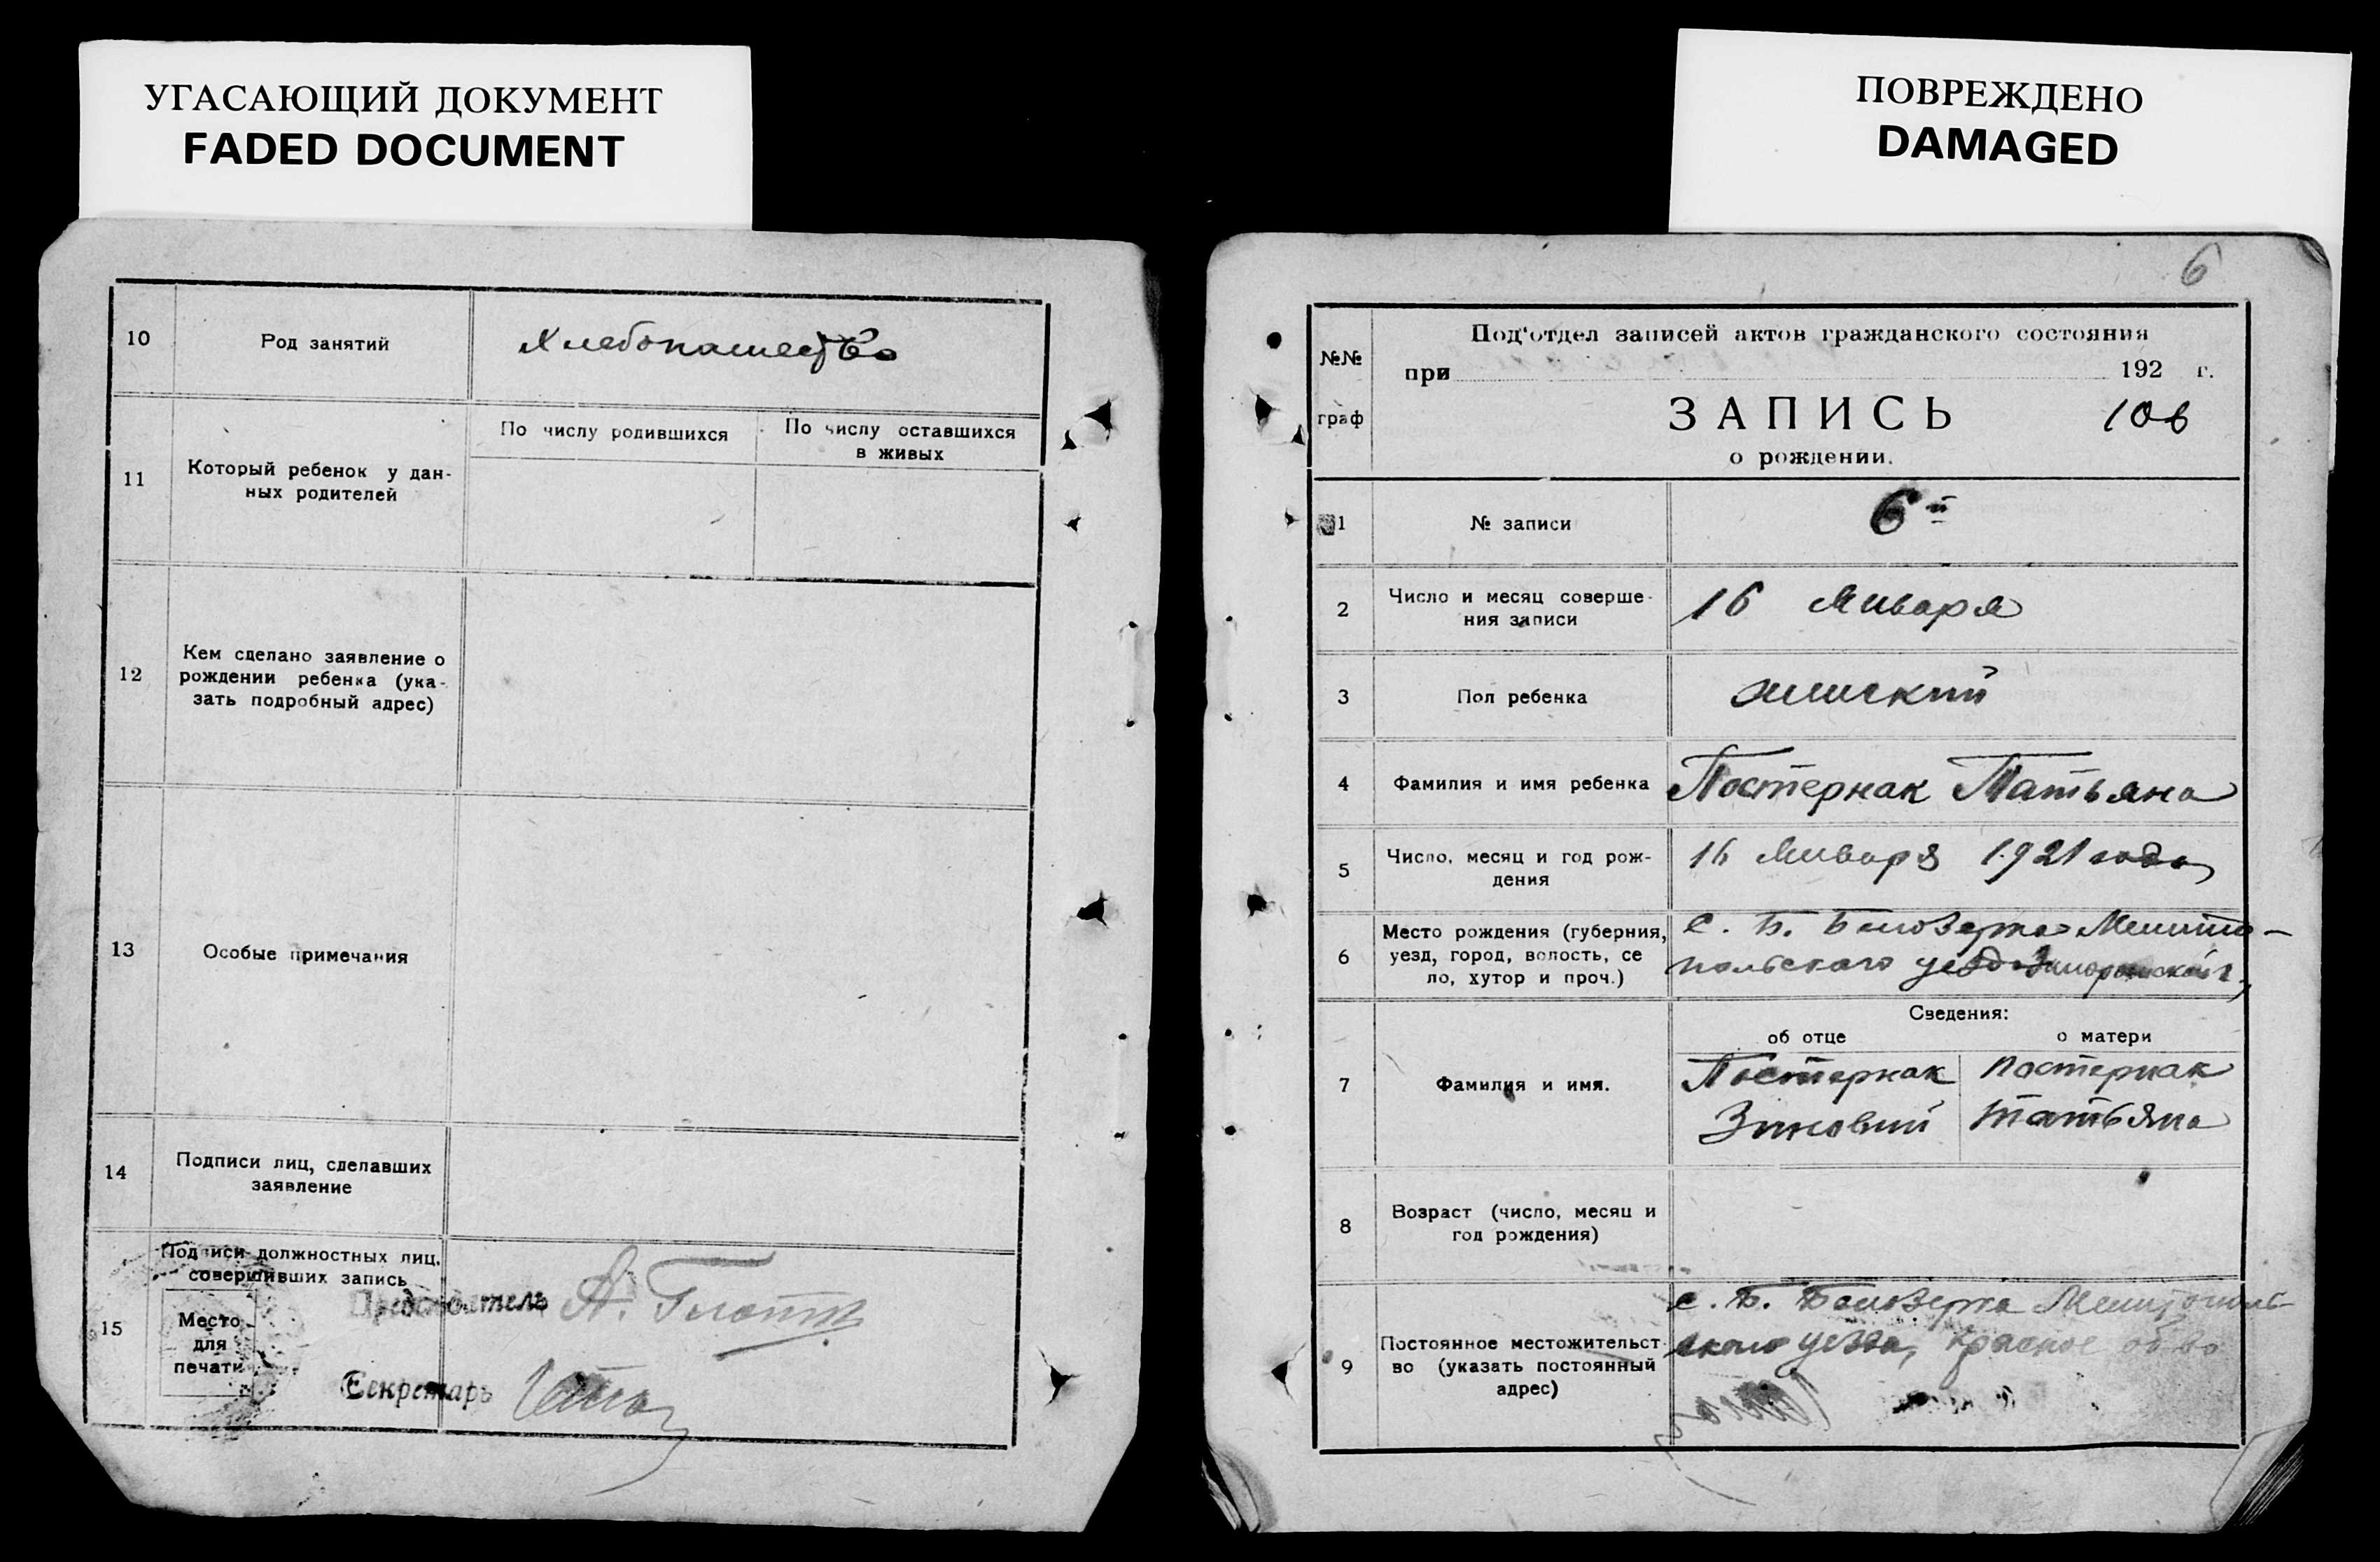 УГАСАЮЩИЙ ДОКУМЕНТ
FADED DOCUMENT
ПОВРЕЖДЕНО
DAMAGED
10
Род занятий
Хлебопашество
11
Который ребенок у дан-
ных родителей
По числу родившихся
По числу оставшихся
в живых
12
Кем сделано заявление о
рождении ребенка (ука-
зать подробный адрес)
13
Особые примечания
14
Подписи лиц, сделавших
заявление
15
Подписи должностных лиц,
совершивших запись
Место
для
печати
Председатель А.
Секретарь
6
№№
граф
Под'отдел записей актов гражданского состояния
при 192 г.
ЗАПИСЬ
о рождении.
1
№ записи
6й
2
Число и месяц соверше-
ния записи
16 Января
3
Пол ребенка
женский
4
Фамилия и имя ребенка
Постернак Татьяна
5
Число, месяц и год рож-
дения
16 Января 1921 года
6
Место рождения (губерния,
уезд, город, волость, се
ло, хутор и проч.)
с. Б. Белозерка Мелито-
польского уезда Запорожской г.
Сведения:
об отце
о матери
7
Фамилия и имя.
Постернак
Зиновий
Постернак
Татьяна
8
Возраст (число, месяц и
год рождения)
9
Постоянное местожительст-
во (указать постоянный
адрес)
с. Б. Белозерка Мелитополь-
ского уезда, Красное об-во